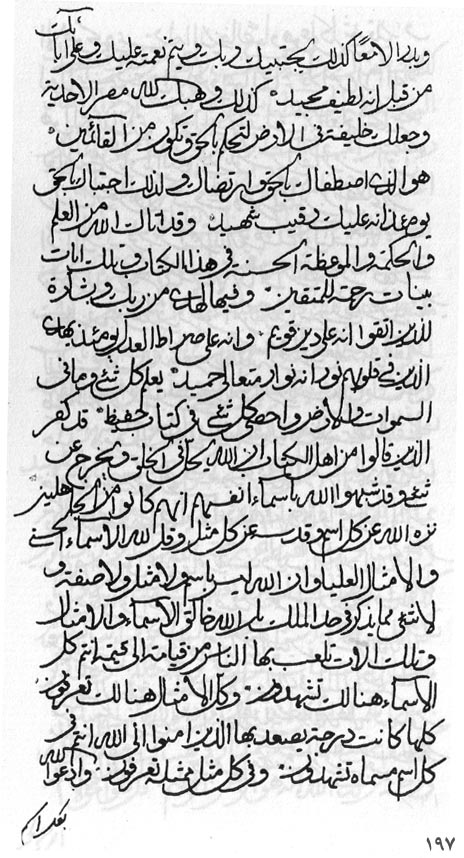 وبدء الامعًا كذلك يجتبيك ربك ويتم نعمته عليك وعلى اباءك
من قبل انه لطيف مجيد كذلك وهبك الله مصر الاحدية
وجعلك خليفة فى الارض لتحكم بالحق وتكون من القائمين
هو الذى اصطفاك بالحق وارتضاك ولذلك اجتباك بالحق
يومئذ انه عليك رقيب شهيد وقد اتاك الله من العلم
والحكمة والموعظة الحسنة فى هذا الكتاب وتلك ايات
بينات رحمة للمتقين وفيها لهدى من ربك وبشارة
للذين اتقوا انه على دين قويم وانه على صراط العدل يومئذ يهدى
الذين فى قلوبهم نور انه نوار متعالى حميد يعلم كل شئ وما فى
السموات والارض واحصى كل شئ فى كتاب حفيظ قد كفر
الذين قالوا من اهل الكتاب ان الله يحل فى الخلق ويخرج عن
شئ وقد شبهوا الله باسماء انفسهم انهم كانوا من الجاهلين
نزه الله عن كل اسم وقدسه عن كل مثل وقل لله الاسماء الحسنى
والامثال العليا وان الله ليس باسم ولا مثل ولا صفة و
لا شئ مما يذكر فى حد الملك بل الله خالق الاسماء والامثال
وتلك الات تلعب بها الناس من قيامة الى قيمة انتم كل
الاسماء هنالك تشهدون وكل الامثال هنالك تعرفون
كلها كانت درجة يصعد بها الذين امنوا الى الله انتم فى
كل اسم مسماه تشهدون وفى كل مثل ممثله تعرفون وادعوا الله
بكل اسم
١٩٧